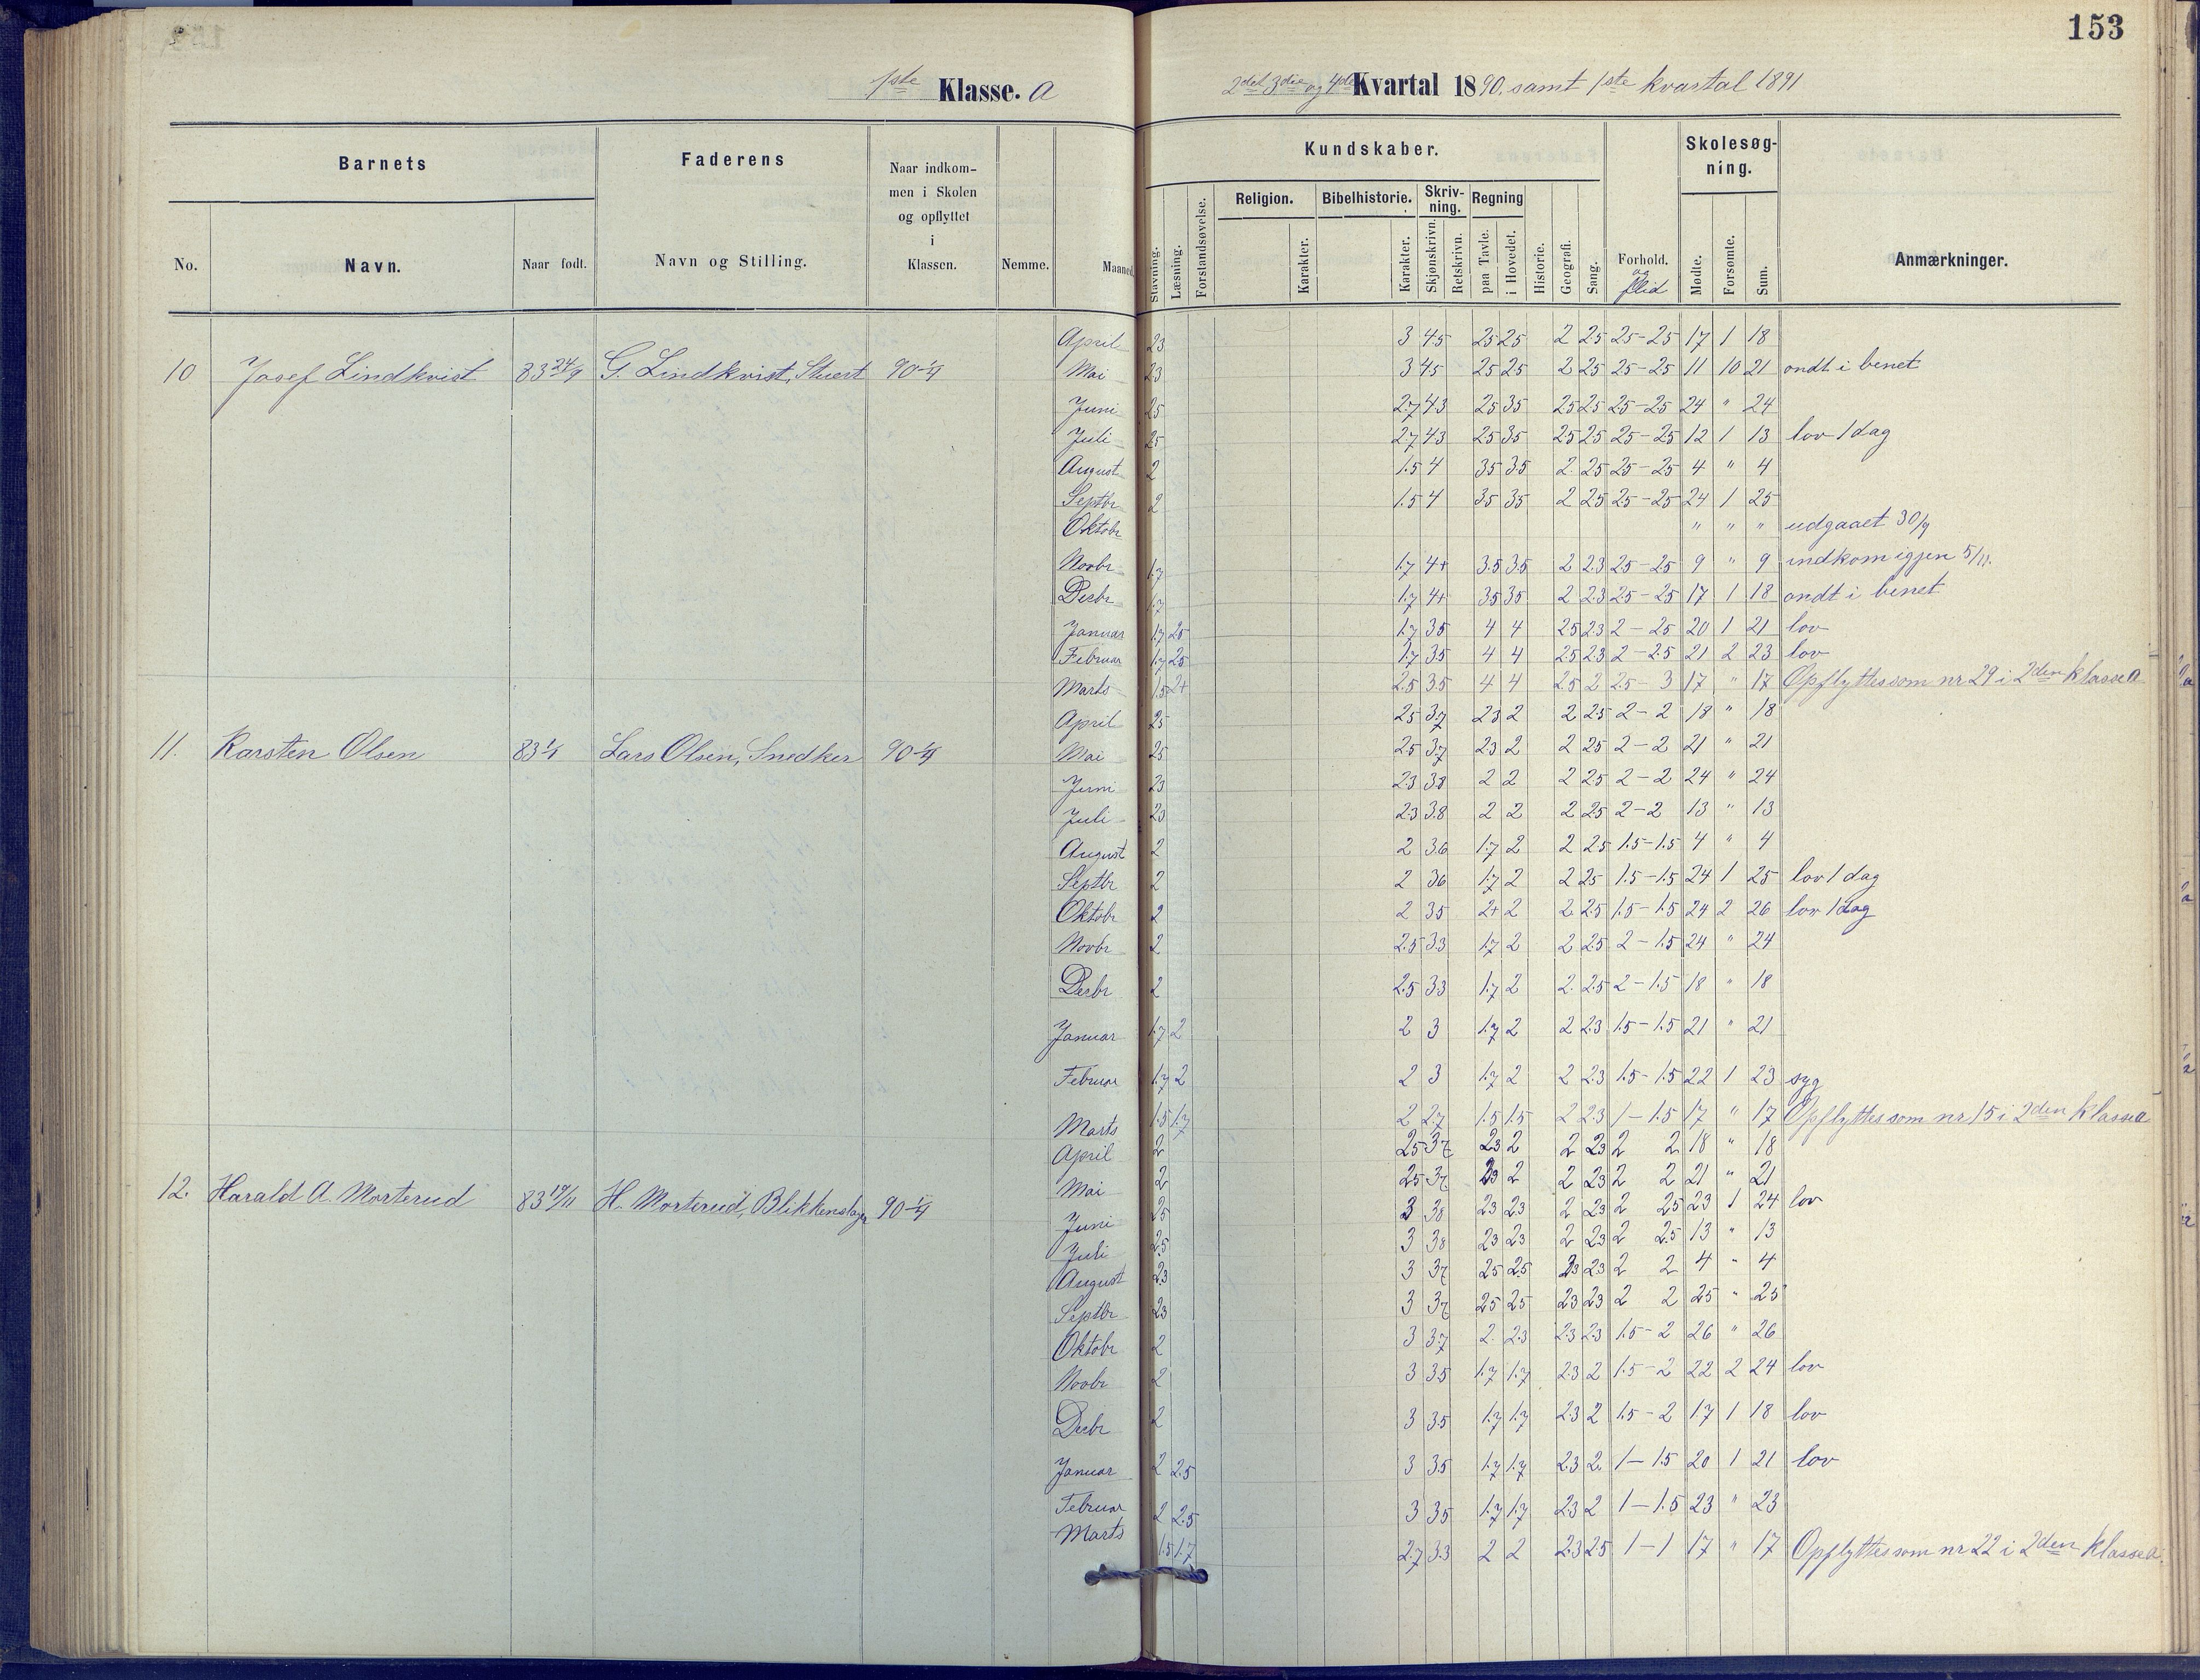 153
1ste Klasse. a
2det 3die og 4de Kvartal 1890. samt 1ste kvartal 1891
Barnets
Faderens
Naar indkommen i Skolen og opflyttet i Klassen.
Kundskaber.
Skolesøgning.
No.
Navn.
Naar født.
Navn og Stilling.
Nemme.
Maaned.
Stavning.
Læsning.
Forstandsøvelse.
Religion.
Karakter.
Bibelhistorie.
Karakter.
Skrivning.
Skjønskrivn.
Retskrivn.
Regning
paa Tavle.
i Hovedet.
Historie.
Geografi.
Sang.
Forhold.
og flid
Mødte.
Forsømte.
Sum.
Anmærkninger.
April 23 3 45 25 25 2 25 25-25 17 1 18
10 Josef Lindkvist 83 24/9 G. Lindkvist, Stuert 90 1/4 Mai 23 3 45 25 25 2 25 25-25 11 10 21 ondt i benet
Juni 25 2.7 43 25 35 25 25 25-25 24 " 24
Juli 25 2.7 43 25 35 25 25 25-25 12 1 13 lov 1 dag
August 2 1.5 4 35 35 2 25 25-25 4 " 4
Septbr 2 1.5 4 35 35 2 25 25-25 24 1 25
Oktobr " " " udgaaet 30/9
Novbr 1.7 1.7 4+ 3.5 3.5 2 2.3 25-25 9 " 9 indkom igjen 5/11.
Decbr 1.7 1.7 4+ 35 35 2 2.3 25-25 17 1 18 ondt i benet
Januar 1.7 25 1.7 35 4 4 25 23 2-25 20 1 21 lov
Februar 1.7 25 1.7 35 4 4 25 23 2-2.5 21 2 23 lov
Marts 1.5 2+ 2.5 35 4 4 25 2 2.5-3 17 " 17 Opflyttes som nr 29 i 2den klasse a
April 25 25 37 23 2 2 25 2-2 18 " 18
11. Karsten Olsen 83 1/1 Lars Olsen, Snedker 90 1/4 Mai 25 25 37 23 2 2 25 2-2 21 " 21
Juni 23 23 38 2 2 2 25 2-2 24 " 24
Juli 23 23 3.8 2 2 2 25 2-2 13 " 13
August 2 2 36 1.7 2 2 25 1.5-1.5 4 " 4
Septbr 2 2 36 1.7 2 2 25 1.5-1.5 24 1 25 lov 1 dag
Oktobr 2 2 35 2+ 2 2 25 1.5-1.5 24 2 26 lov 1 dag
Novbr 2 2.5 33 1.7 2 2 25 2-1.5 24 " 24
Decbr 2 2.5 33 1.7 2 2 25 2-1.5 18 " 18
Januar 1.7 2 2 3 1.7 2 2 23 1.5-1.5 21 " 21
Februar 1.7 2 2 3 1.7 2 2 2.3 1.5-1.5 22 1 23 syg
Marts 1.5 1.7 2 2.7 1.5 1.5 2 2.3 1-1.5 17 " 17 Opflyttes som nr 15 i 2den klasse a
April 2 25 37 23 2 2 23 2 2 18 " 18
Mai 2 25 37 23 2 2 23 2 2 21 " 21
12. Harald A. Morterud 83 19/11 H. Morterud, Blikkenslager 90 1/4
Juni 25 3 38 23 23 2 23 2 25 23 1 24 lov
Juli 25 3 38 23 23 2 23 2 25 13 " 13
August 23 3 37 25 25 23 23 2 2 4 " 4
Septbr 23 3 37 25 25 23 23 2 2 25 " 25
Oktobr 2 3 37 2 23 23 23 1.5-2 26 " 26
Novbr 2 3 35 1.7 1.7 23 2 1.5-2 22 2 24 lov
Decbr 2 3 35 1.7 1.7 23 2 1.5-2 17 1 18 lov
Januar 2 2.5 3 35 1.7 1.7 23 2 1-1.5 20 1 21 lov
Februar 2 2.5 3 35 1.7 1.7 23 2 1-1.5 23 " 23
Marts 1.5 1.7 2.7 3.3 2 2 23 25 1-1 17 " 17 Opflyttes som nr 22 i 2den klasse a.